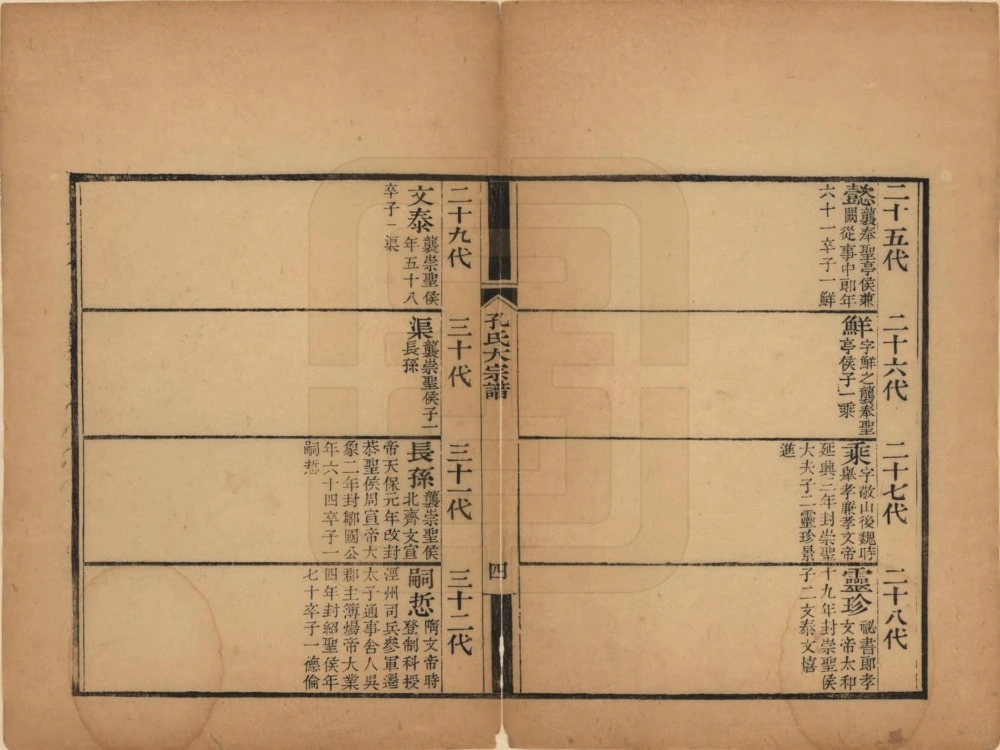 二十五代
懿 襲奉聖亭侯兼
關從事中郎年
六十一卒子一鮮
二十六代
鮮 字鮮之襲奉聖
亭侯子一乘
二十七代
乘 字敬山後魏時
舉孝廉孝文帝
延興三年封崇聖
大夫子二靈珍景
進
二十八代
靈珍 祕書郎孝
文帝太和
十九年封崇聖侯
子二文泰文㷆
孔氏大宗譜
四
二十九代
文泰 襲崇聖侯
年五十八
卒子一渠
三十代
渠 襲崇聖侯子一
長孫
三十一代
長孫 襲崇聖侯
北齊文宣
帝天保元年改封
恭聖侯周宣帝大
象二年封鄒國公
年六十四卒子一
嗣悊
三十二代
嗣悊 隋文帝時
登制科授
涇州司兵參軍遷
太子通事舍人吳
郡主簿煬帝大業
四年封紹聖侯年
七十卒子一德倫